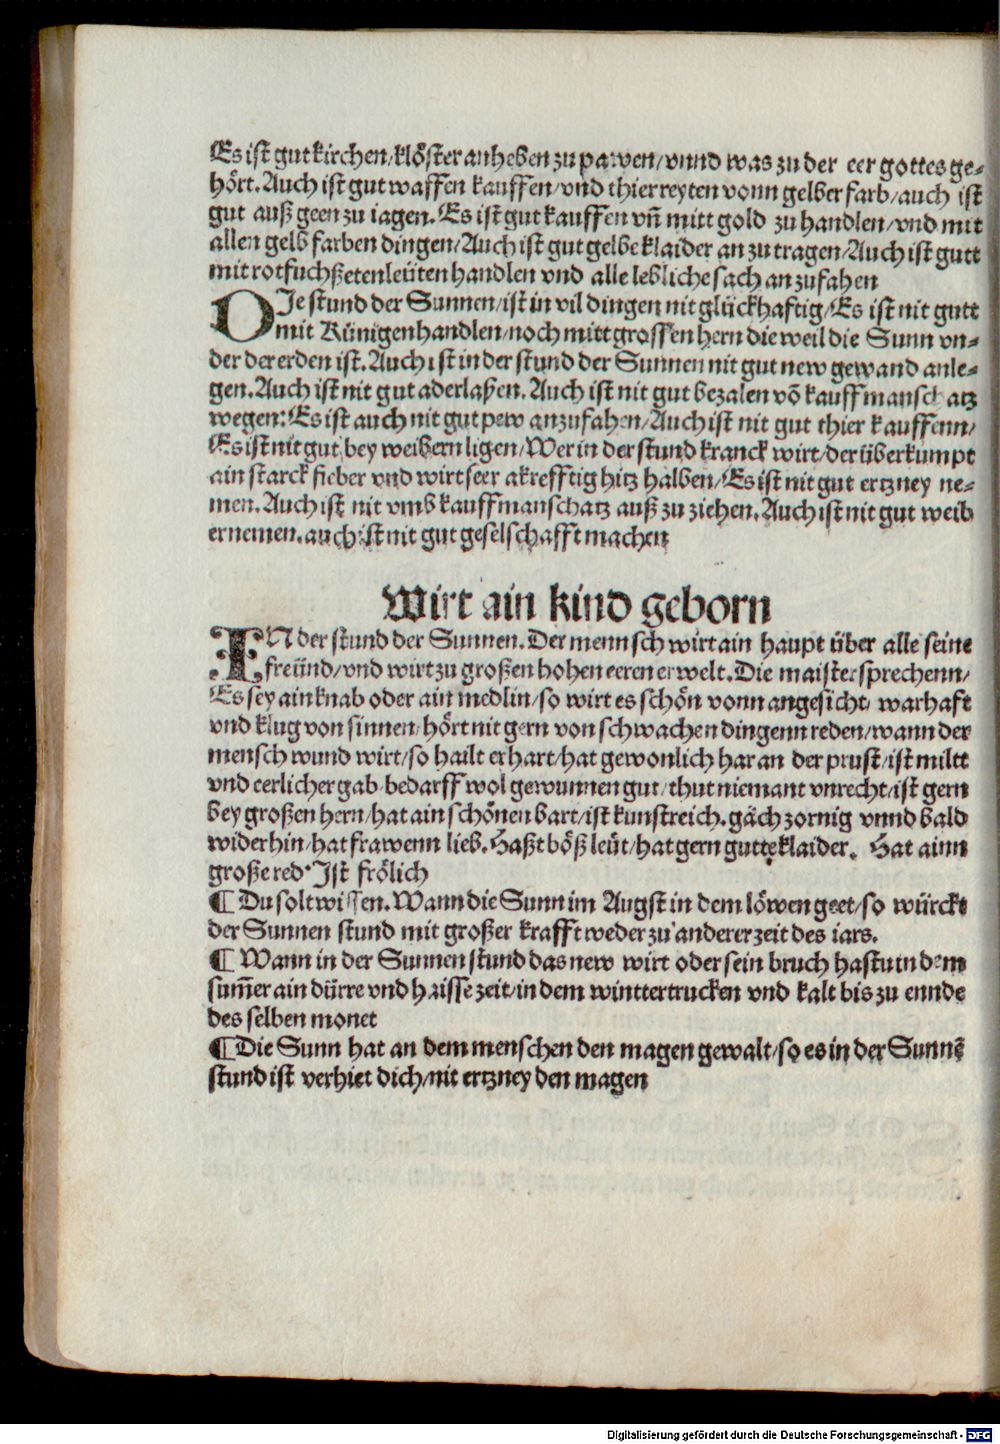 Es ist gut kirchen/klöster anheben zu pawen/vnnd was zu der eer gottes ge⸗
hört. Auch ist gut waffen kauffen/vnd thier reyten vonn gelber farb/auch ist
gut auß geen zu iagen. Es ist gut kauffen vñ mitt gold zu handlen/vnd mit
allen gelb farben dingen/Auch ist gut gelbe klaider an zu tragen/Auch ist gutt
mit rotfuchßeten leüten handlen vnd alle lebliche sach an zufahen
DJe stund der Sunnen/ist in vil dingen nit glückhafftig/Es ist nit gutt
mit Künigen handlen/noch mitt grossen hern die weil die Sunn vn⸗
der der erden ist. Auch ist in der stund der Sunnen nit gut new gewand anle⸗
gen. Auch ist nit gut aderlaßen. Auch ist nit gut bezalen võ kauffmanschatz
wegen: Es ist auch nit gut pew anzufahen/Auch ist nit gut thier kauffenn/
Es ist nit gut bey weibern ligen/Wer in der stund kranck wirt/der überkumpt
ain starck fieber vnd wirt seer akrefftig hitz halben/Es ist nit gut ertzney ne⸗
men. Auch ist nit vmb kauffmanschatz auß zu ziehen. Auch ist nit gut weib
ernemen. auch ist nit gut geselschafft machen
Wirt ain kind geborn
IN der stund der Sunnen. Der mennsch wirt ain haupt über alle seine
freünd/vnd wirt zu großen hohen eeren erwelt. Die maister sprechenn/
Es sey ain knab oder ain medlin/so wirt es schön vonn angesicht/ warhaft
vnd klug von sinnen/hört nit gern von schwachen dingenn reden/wann der
mensch wund wirt/so hailt er hart/hat gewonlich har an der prust/ist miltt
vnd eerlicher gab/bedarff wol gewunnen gut/thut niemant vnrecht/ist gern
bey großen hern/hat ain schönen bart/ist kunstreich. gäch zornig vnnd bald
widerhin/hat frawenn lieb. Haßt böß leüt/hat gern gutte klaider. Hat ainn
große red. Jst frölich
¶ Du solt wissen. Wann die Sunn im Augst in dem löwen geet/so würckt
der Sunnen stund mit großer krafft weder zu anderer zeit des iars.
¶ Wann in der Sunnen stund das new wirt oder sein bruch hastu in dem
sum̃er ain dürre vnd haisse zeit/in dem wintter trucken vnd kalt bis zu ennde
des selben monet
¶ Die Sunn hat an dem menschen den magen gewalt/so es in der Sunnẽ
stund ist verhiet dich/nit ertzney den magen
Digitalisierung gefördert durch die Deutsche Forschungsgemeinschaft - DFG